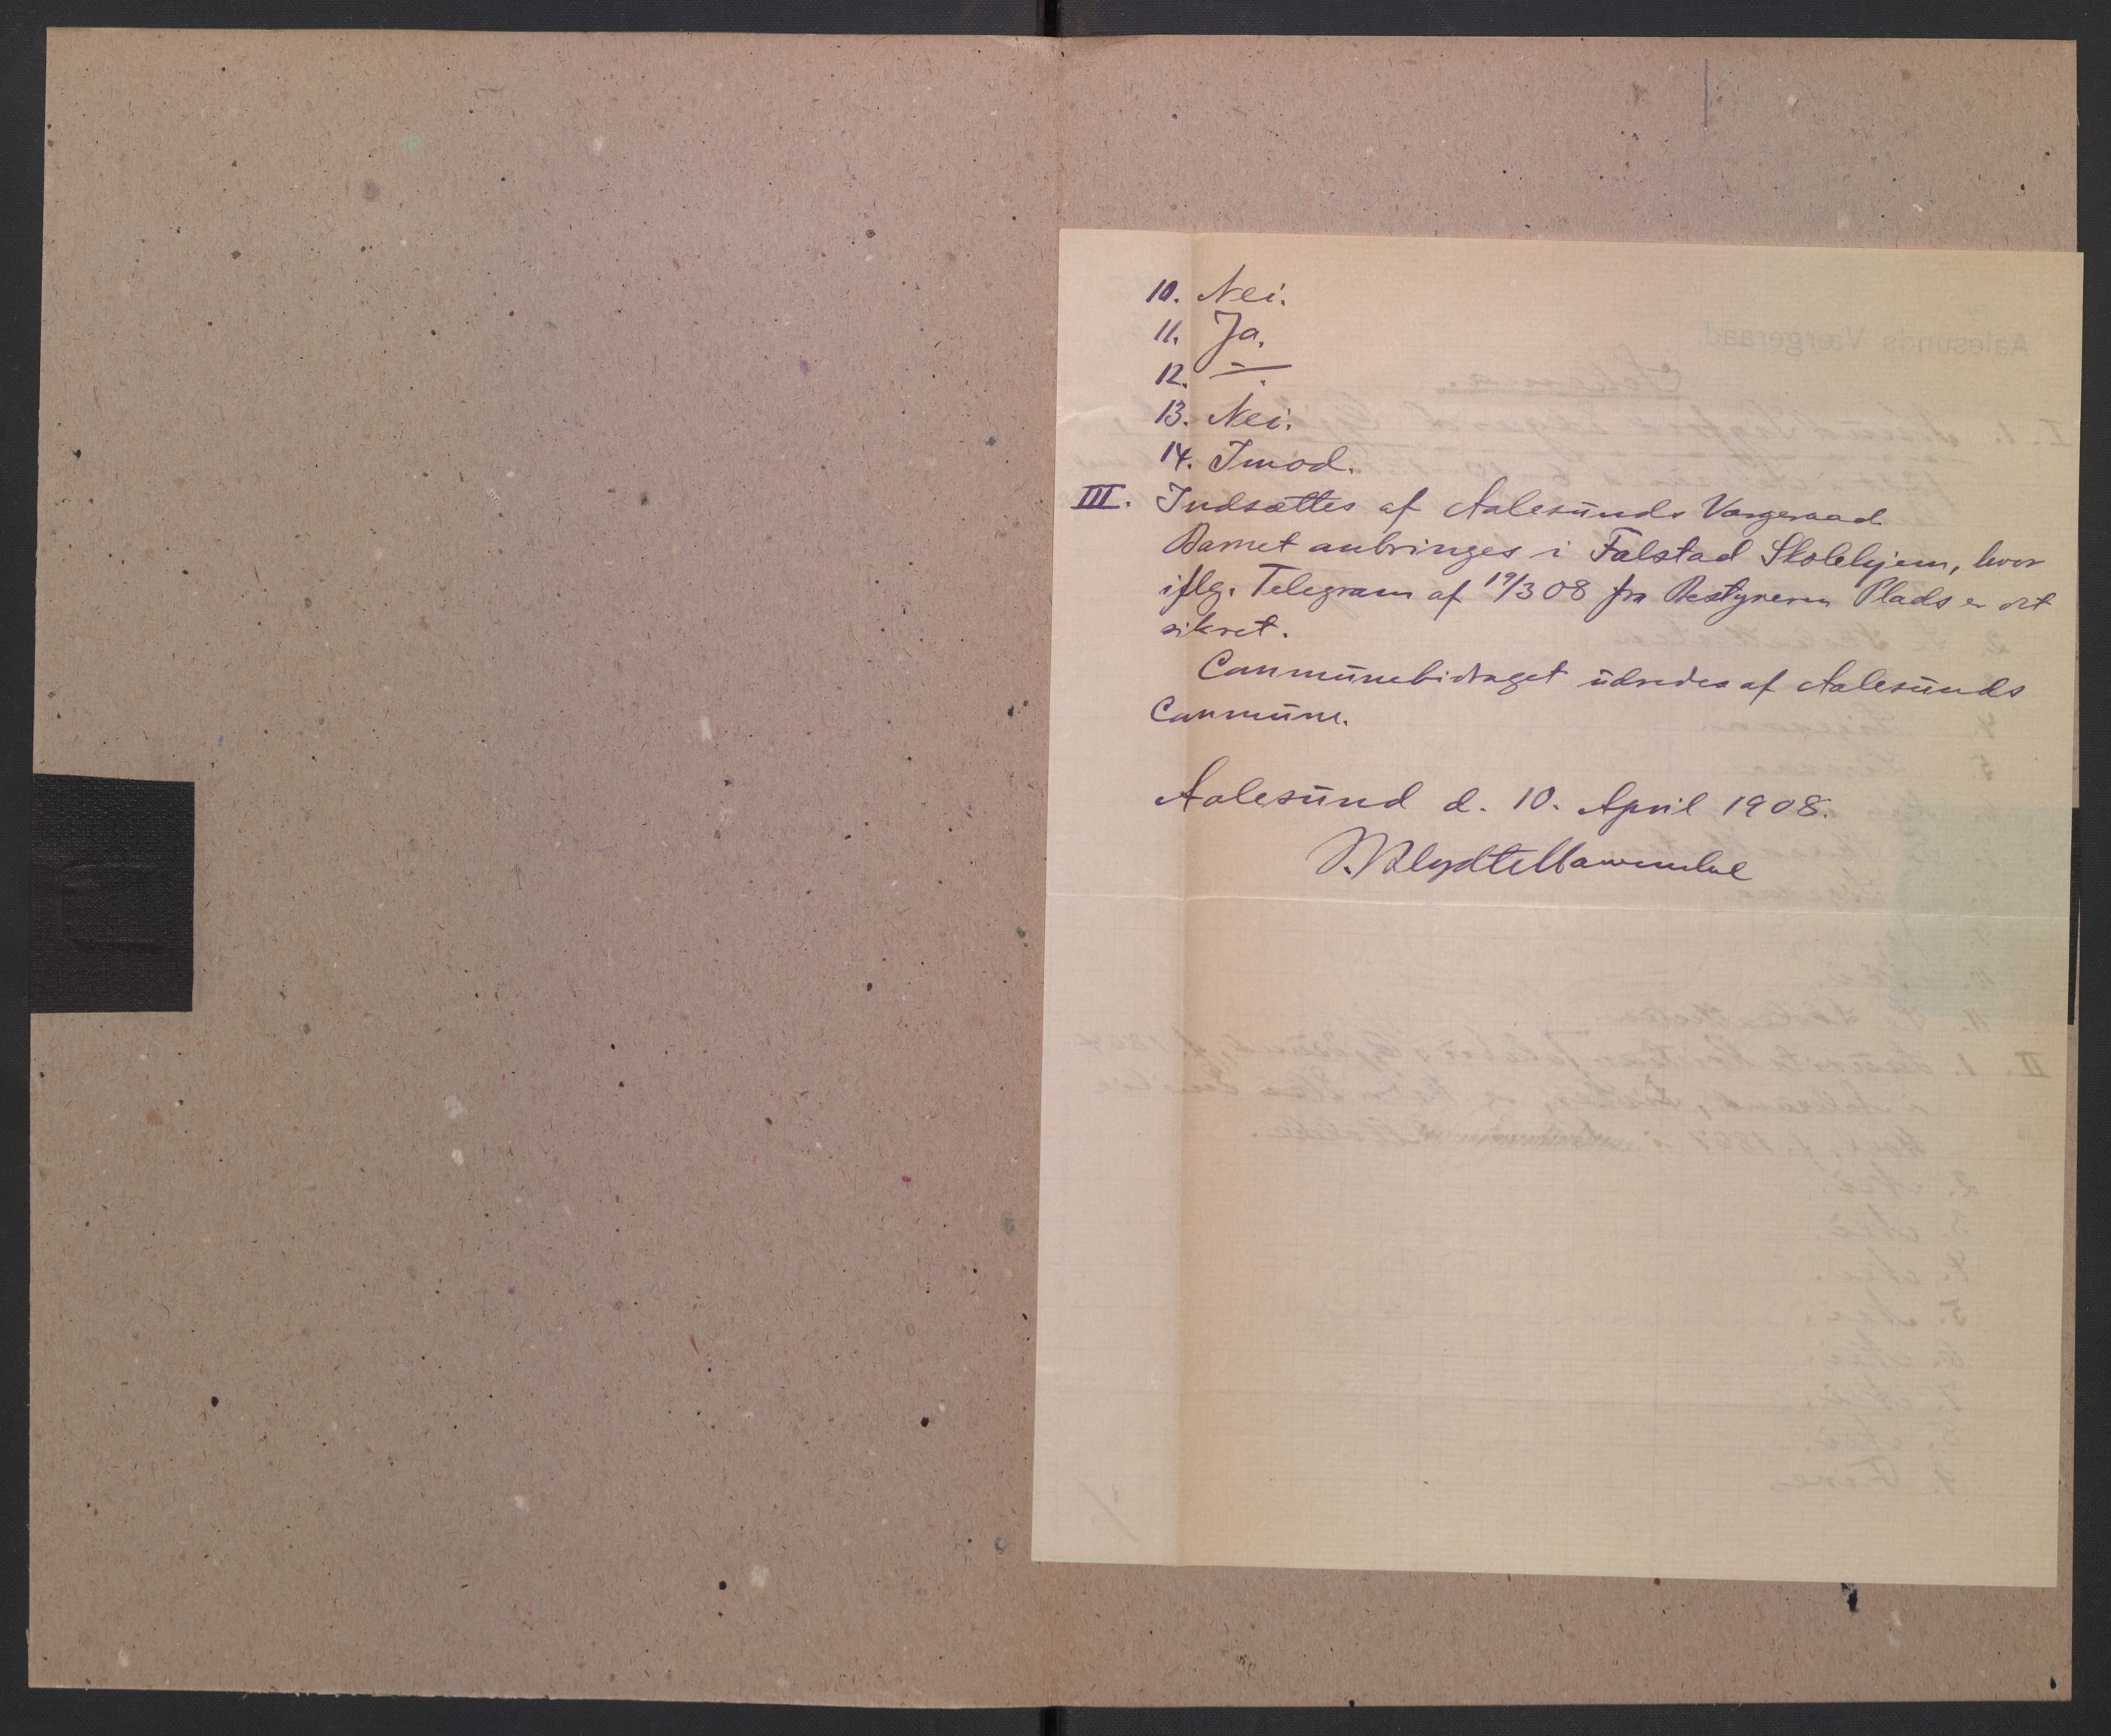 10. Nei.
11. Ja.
12. —
13. Nei.
14. Imod.
III. Indsættes af Aalesunds Værgeraad
Barnet anbringes i Falstad Skolehjem, hvor
iflg. Telegram af 19/3 08 fra Bestyreren Plads er det
sikret.
Communebidraget udredes af Aalesunds
Commune.
Aalesund d. 10. April 1908.